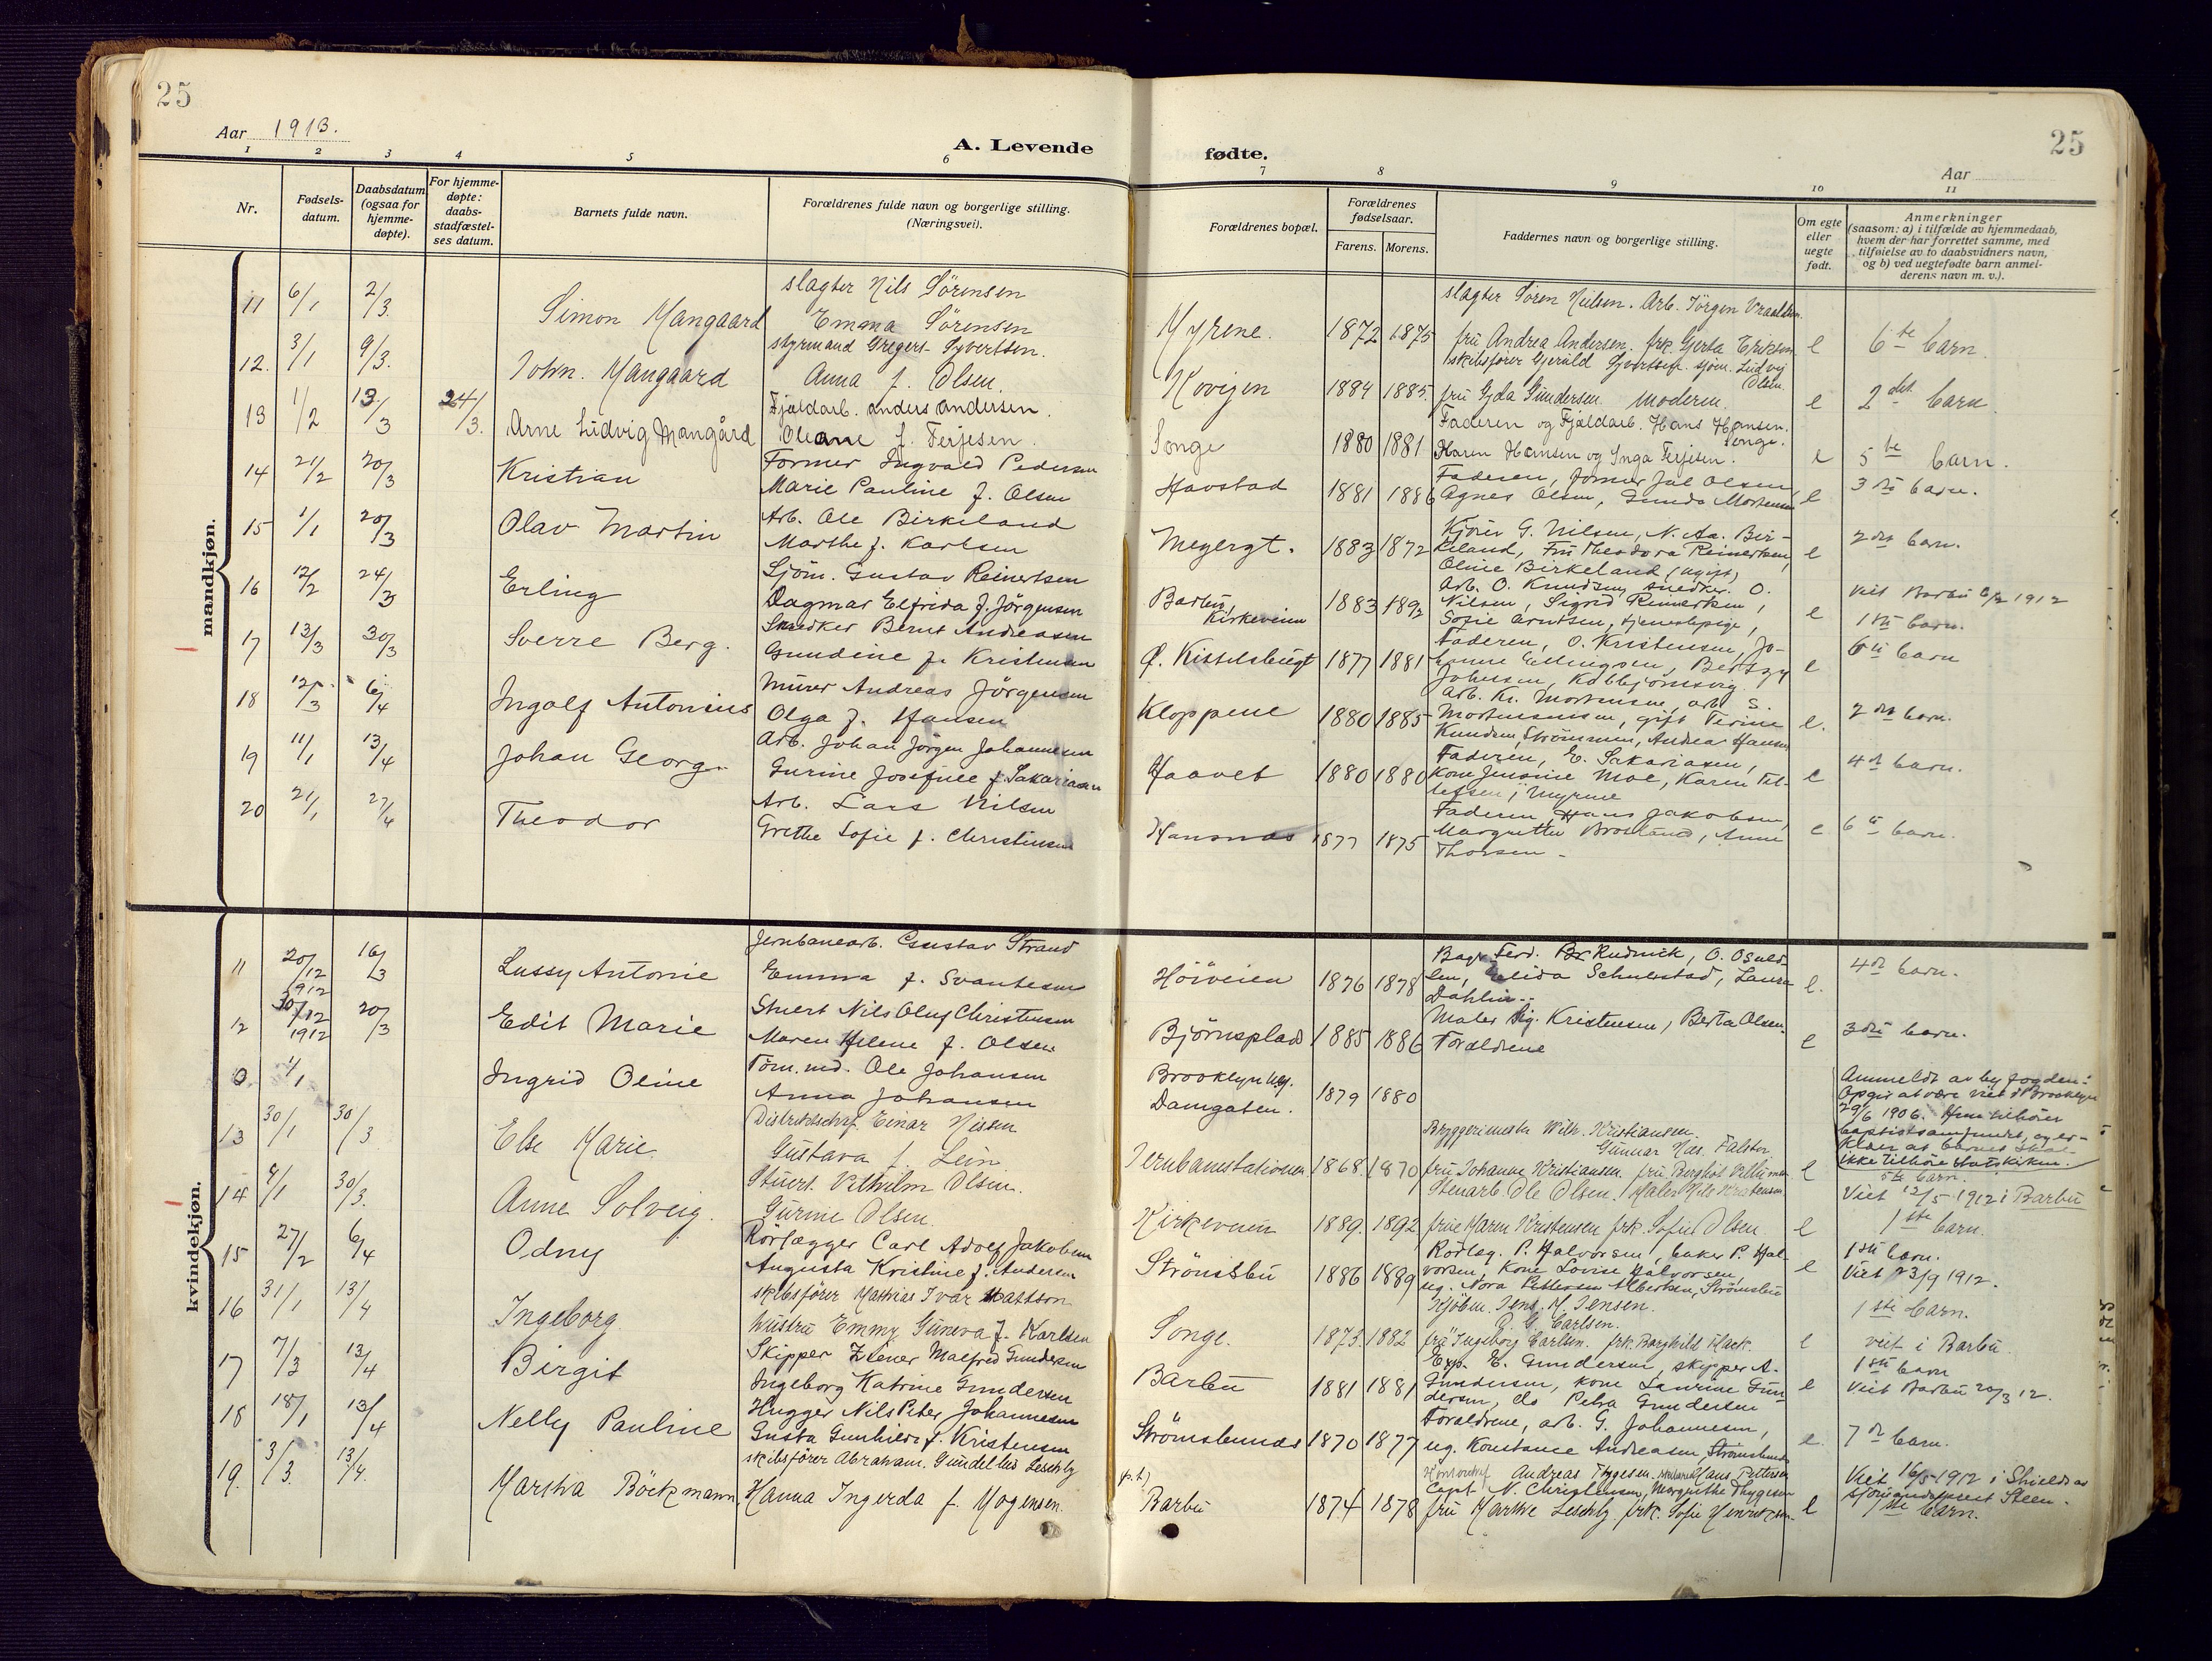 25
25
Aar 1913.
A. Levende
fødte.
Aar
1 2 3 4 5 6 7 8 9 10 11
Nr.
Fødsels-
datum.
Daabsdatum
(ogsaa for
hjemme-
døpte).
For hjemme-
døpte:
daabs-
stadfæstel-
ses datum.
Barnets fulde navn.
Forældrenes fulde navn og borgerlige stilling.
(Næringsvei).
Forældrenes bopæl.
Forældrenes
fødselsaar.
Farens. Morens.
Faddernes navn og borgerlige stilling.
Om egte
eller
uegte
født.
Anmerkninger
(saasom: a) i tilfælde av hjemmedaab,
hvem der har forrettet samme, med
tilføielse av to daabsvidners navn,
og b) ved uegtefødte barn anmel-
derens navn m. v.).
mandkjøn.
11 6/1 2/3. Simon Mangaard
slagter Nils Sörensen
Emma Sörensen
Myrene. 1872 1875
slagter Sören Nielsen. Arb. Jörgen
fru Andrea Andersen. frk. Gerta Eriksen
e 6te barn.
12. 3/1 9/3. John. Mangaard
styrmand Gregers Syvertsen.
Anna f. Olsen.
1884 1885.
skibsfører Gerald Syvertsen. sjöm. Ludvig
Olsen.
fru Gyda Gundersen. Moderen.
e 2det barn.
13 1/2 13/3 24/3. Arne Ludvig Mangård
Fjeldarb. Anders Andersen.
Oleane f. Terjesen.
Songe 1880 1881
Faderen og Fjeldarb. Hans Hansen.
Songe.
Karen Hansen og Inga Terjesen.
e 5te barn.
14 21/2 20/3 Kristian
Former Ingvald Pedersen
Marie Pauline f. Olsen
Havstad 1881 1886
Faderen, former Jul Olsen
Agnes Olsen, Gunda Mortensen
e 3die barn.
15 1/1 20/3 Olav Martin
Arb. Ole Birkeland
Marthe f. Karlsen
Meyergt. 1883 1872
Kjörer G. Nilsen, N. Aa. Bir-
keland, Fru Theodora Reinertsen,
Oline Birkeland (ugift)
e 2det barn.
16 12/2 24/3 Erling
Sjöm. Gustav Reinertsen
Dagmar Elfrida f. Jörgensen
Barbu,
Kirkeveien 1883 1892
Arb. O. Knudsen, snedker O.
Nilsen, Sigrid Reinertsen,
Sofie Arntsen, tjenestepige,
e Viet Barbu 1912
1ste barn.
17 13/3 30/3 Sverre Berg.
Snedker Bernt Andreasen
Gundine f. Kristensen
Ø. Kittelsbugt 1877 1881
Faderen, O. Kristensen, Jo-
hanne Ellingsen, Betzy
Johnsen, Kolbjörnsvig.
e 6te barn
18 12/3 6/4 Ingolf Antonius
Murer Andreas Jörgensen
Olga f. Hansen
Kloppene 1880 1885
Arb. Kr. Mortensen, arb. S.
Mortensen, gift Terine
Knudsen, Strömmen, Andrea Hansen
e. 2det barn.
19 11/1 13/4 Johan Georg
Arb. Johan Jörgen Johannesen
Gurine Josefine f. Sakariasen
Haavet 1880 1880
Faderen, E. Sakariasen,
Kone Jensine Moe, Karen Tel-
lefsen, Myrene
e 4de barn.
20 21/1 27/4 Theodor
Arb. Lars Nilsen
Grethe Sofie f. Christensen
Hansnæs 1877 1875
Faderen, Hans Jakobsen,
Margrethe Brosland, Anne
Thorsen
e 6te barn.
kvindekjøn.
11 20/12 1912 16/3 Lussy Antonie
Jernbanearb. Gustav Strand
Emma f. Svantesen
Höiveien 1876 1878
Bager Ferd. Br. Rudnick, O. Osuld-
sen, Elida Schulerstad, Laura
Dahlin
e. 4de barn.
12 30/12 1912 20/3 Edit Marie
Stuert Nils Oluf Christensen
Maren Helene f. Olsen
Björnsplads 1885 1886
Maler Sig. Kristensen, Berta Olsen.
Forældrene
e 3die barn.
0 1/1 Ingrid Oline
Töm.md. Ole Johansen
Anna Johansen
Brooklyn N.Y.
Damgaten. 1879 1880
Anmeldt av byfogden:
Opgir at være viet i Brooklyn
29/6 1906. Hun tilhører
baptistsamfundet, og er-
klær at barnet skal
ikke tilhöre statskirken.
13 30/1 30/3 Else Marie
Distriktschef Einar Nissen
Gustava f. Lein
Jernbanestationen 1868. 1870
Bryggerimester Wilh. Kristiansen
Gunnar Næs. Falster.
fru Johanne Kristiansen. fru Borghot
e 5te barn.
14 4/1 30/3. Anne Solveig.
Stuert. Vilhelm Olsen.
Gurine Olsen.
Kirkeveien 1889. 1892
Stenarb. Ole Olsen. Maler Nils Kristensen
frue Maren Kristensen frk. Sofie Olsen
e Viet 12/5 1912 i Barbu
1ste barn.
15 27/2 6/4 Odny
Rörlægger Carl Adolf Jakobsen
Augusta Kristine f. Andersen
Strömsbu 1886 1889
Rörlæg. P. Halvorsen, baker P. Hal-
vorsen, Kone Lovise Halvorsen,
ug. Nora Albertsen, Strömsbu
e 1ste barn.
Viet 23/9 1912.
16 31/1 13/4 Ingeborg
skibsfører Mathias Ivar Mattson
hustru Emmy Guneva f. Karlsen
Songe. 1873. 1882
Kjöbm. Jens. M. Jensen.
O. G. Carlsen.
fru Ingeborg Carlsen. frk. Borghild Flack.
e 1ste barn.
viet i Barbu
17 7/3 13/4 Birgit
Skipper Ziener Malfred Gundersen
Ingeborg Katrine Gundersen
Barbu 1881 1881
Exp. E. Gundersen, skipper A.
Gundersen, kone Laurine Gun-
dersen, do Petra Gundersen
e 1ste barn
Viet Barbu 20/3 12.
18 18/1 13/4 Nelly Pauline
Hugger Nils Peter Johannesen
Gusta Gunhilde f. Kristensen
Strömsbunes 1870 1877
Forældrene, arb. G. Johannesen,
ug. Konstance Andreasen, Strömsbunes
e. 7de barn.
19. 3/3. 13/4. Martha Böckmann
skibsfører Abraham. Gundelius Leschly
Hanna Ingerda f. Mogensen.
p.t.
Barbu 1874 1878
Andreas Thygesen. Hans Pettersen
Capt. N. Christensen, Margrethe Thygesen
fru Marthe Leschly. frk. Sofie Henriksen.
e Viet 16/5 1912 i Shields av
sjömandsprest Steen.
1ste barn.